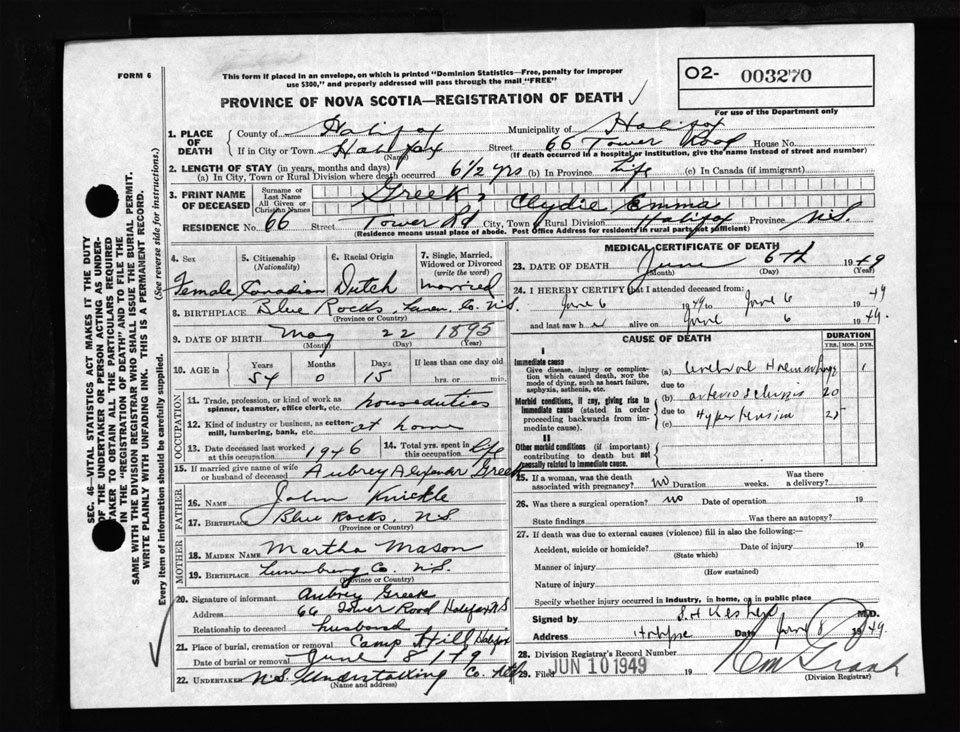 FORM 6
This form if placed in an envelope, on which is printed "Dominion Statistics—Free, penalty for improper
use $300," and properly addressed will pass through the mail "FREE"
O2- 003270
For use of the Department only
PROVINCE OF NOVA SCOTIA—REGISTRATION OF DEATH
1. PLACE OF DEATH
County of Halifax Municipality of Halifax
If in City or Town Halifax Street 66 Tower Road House No.
(Name) (If death occurred in a hospital or institution, give the name instead of street and number)
2. LENGTH OF STAY (in years, months and days)
(a) In City, Town or Rural Division where death occurred 6 1/2 yrs (b) In Province Life (c) In Canada (if immigrant)
3. PRINT NAME OF DECEASED
Surname or Last Name
All Given or Christian Names
Greek, Clydie Emma
RESIDENCE No. 66 Street Tower Rd City, Town or Rural Division Halifax Province N.S.
(Residence means usual place of abode. Post Office Address for residents in rural parts not sufficient)
4. Sex
Female
5. Citizenship
(Nationality)
Canadian
6. Racial Origin
Dutch
7. Single, Married, Widowed or Divorced
(write the word)
married
8. BIRTHPLACE Blue Rocks, Lunen. Co. N.S.
(Province or Country)
9. DATE OF BIRTH May 22 1895
(Month) (Day) (Year)
10. AGE in
Years Months Days If less than one day old
54 0 15 hrs. or min.
OCCUPATION
11. Trade, profession, or kind of work as spinner, teamster, office clerk, etc. houseduties
12. Kind of industry or business, as cotton-mill, lumbering, bank, etc. at home
13. Date deceased last worked at this occupation 1946
14. Total yrs. spent in this occupation life
15. If married give name of wife or husband of deceased Aubrey Alexander Greek
FATHER
16. NAME John Knickle
17. BIRTHPLACE Blue Rocks, N.S.
(Province or Country)
MOTHER
18. MAIDEN NAME Martha Mason
19. BIRTHPLACE Lunenburg Co. N.S.
(Province or Country)
20. Signature of informant Aubrey Greek
Address 66 Tower Road Halifax N.S
Relationship to deceased husband
21. Place of burial, cremation or removal Camp Hill Halifax
Date of burial or removal June 8 1949
22. UNDERTAKER N.S. Undertaking Co.
(Name and address)
MEDICAL CERTIFICATE OF DEATH
23. DATE OF DEATH June 6th 1949
(Month) (Day) (Year)
24. I HEREBY CERTIFY that I attended deceased from:
June 6 1949 to June 6 1949
and last saw her alive on June 6 1949.
CAUSE OF DEATH
DURATION
YRS. MOS. DYS.
I
Immediate cause
Give disease, injury or complication which caused death, not the mode of dying, such as heart failure, asphyxia, asthenia, etc.
(a) Cerebral Haemorrhage 1
due to
Morbid conditions, if any, giving rise to immediate cause (stated in order proceeding backwards from immediate cause).
(b) arterio sclerosis 20
due to
(c) Hypertension
II
Other morbid conditions (if important) contributing to death but not causally related to immediate cause.
25. If a woman, was the death associated with pregnancy? no Duration weeks. Was there a delivery?
26. Was there a surgical operation? no Date of operation 19
State findings Was there an autopsy?
27. If death was due to external causes (violence) fill in also the following:—
Accident, suicide or homicide? Date of injury 19
(State which)
Manner of injury
(How sustained)
Nature of injury
Specify whether injury occurred in industry, in home, or in public place
Signed by M.D.
Address Date June 8 1949.
28. Division Registrar's Record Number
29. Filed JUN 10 1949 19
(Division Registrar)
SEC. 46—VITAL STATISTICS ACT MAKES IT THE DUTY
OF THE UNDERTAKER OR PERSON ACTING AS UNDER-
TAKER TO OBTAIN ALL THE PARTICULARS REQUIRED
IN THE "REGISTRATION OF DEATH" AND TO FILE THE
SAME WITH THE DIVISION REGISTRAR WHO SHALL ISSUE THE BURIAL PERMIT.
WRITE PLAINLY WITH UNFADING INK. THIS IS A PERMANENT RECORD.
Every item of information should be carefully supplied. (See reverse side for instructions.)